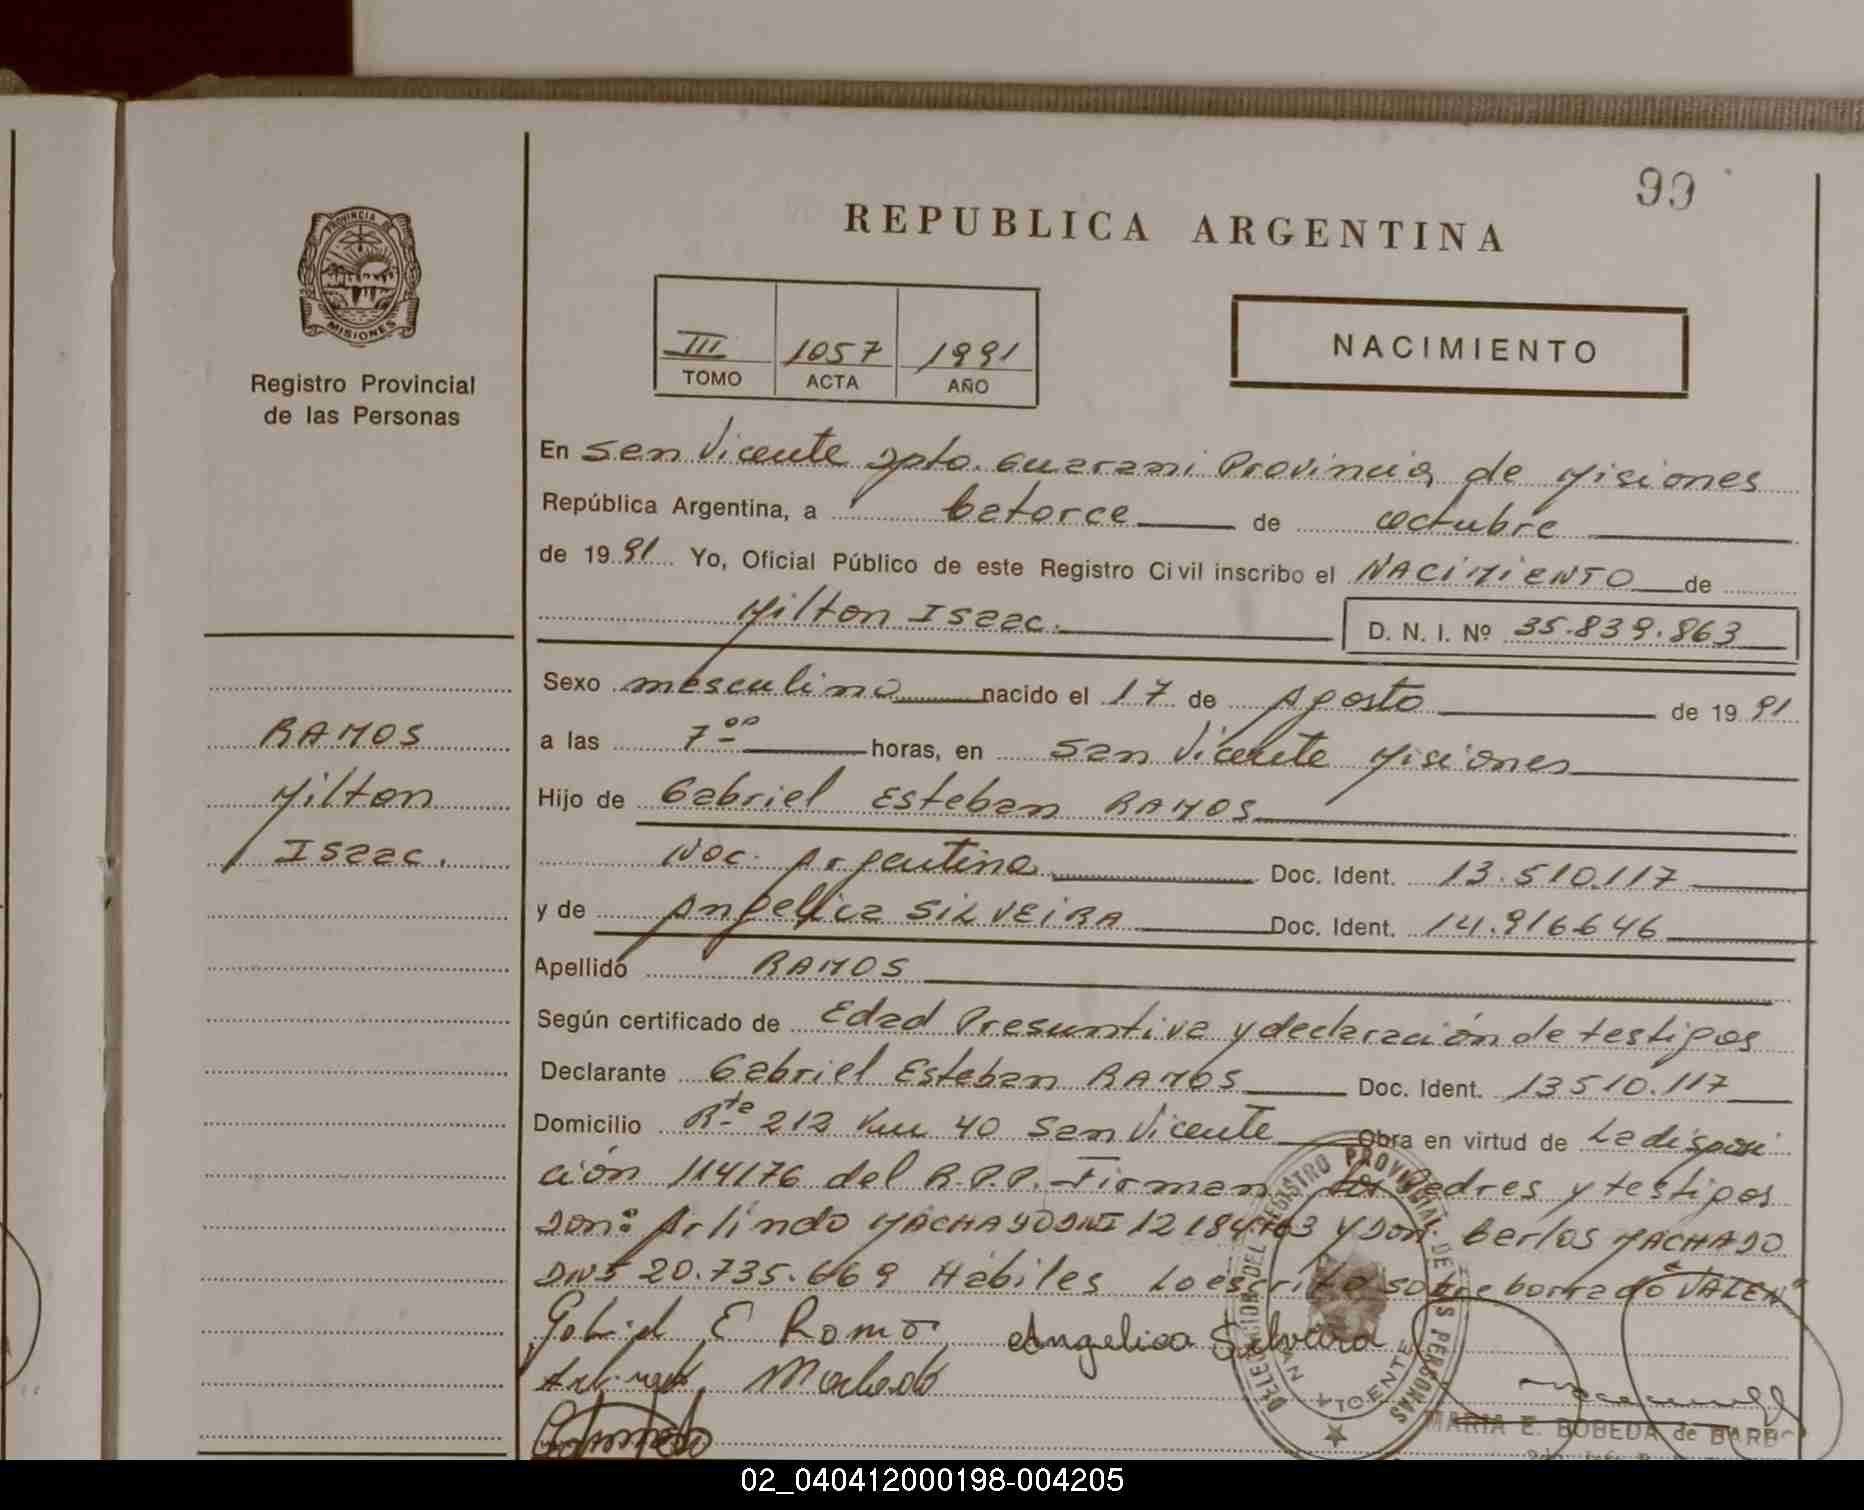 99
REPUBLICA ARGENTINA
PROVINCIA DE
MISIONES
Registro Provincial
de las Personas
III 1057 1991
TOMO ACTA AÑO
NACIMIENTO
En San Vicente Dpto. Guarani Provincia de Misiones
República Argentina, a Catorce de octubre
de 1991 Yo, Oficial Público de este Registro Civil inscribo el NACIMIENTO de
Milton Isaac. D. N. I. Nº 35.839.863
Sexo masculino nacido el 17 de Agosto de 1991
a las 7 00 horas, en San Vicente Misiones
Hijo de Gabriel Esteban RAMOS
Nac. Argentina Doc. Ident. 13.510.117
y de Angelica SILVEIRA Doc. Ident. 14.916.646
Apellido RAMOS
Según certificado de Edad Presuntiva y declaración de testigos
Declarante Gabriel Esteban RAMOS Doc. Ident. 13510.117
Domicilio Rta 212 Km 40 San Vicente Obra en virtud de La disposi
ción 114176 del R.P.P. Firman los Padres y testigos
Don: Arlindo MACHADO DNI 12184763 y Don: Carlos MACHADO
DNI 20.735.669 Hábiles Lo escrito sobre borrado "VALEN"
RAMOS
Milton
Isaac.
Gabriel E Ramo Angelica Silveira
Machado
DELEGACION DEL REGISTRO PROVINCIAL DE LAS PERSONAS
SAN VICENTE
MARIA E. BOBEDA de BARBO
02_040412000198-004205